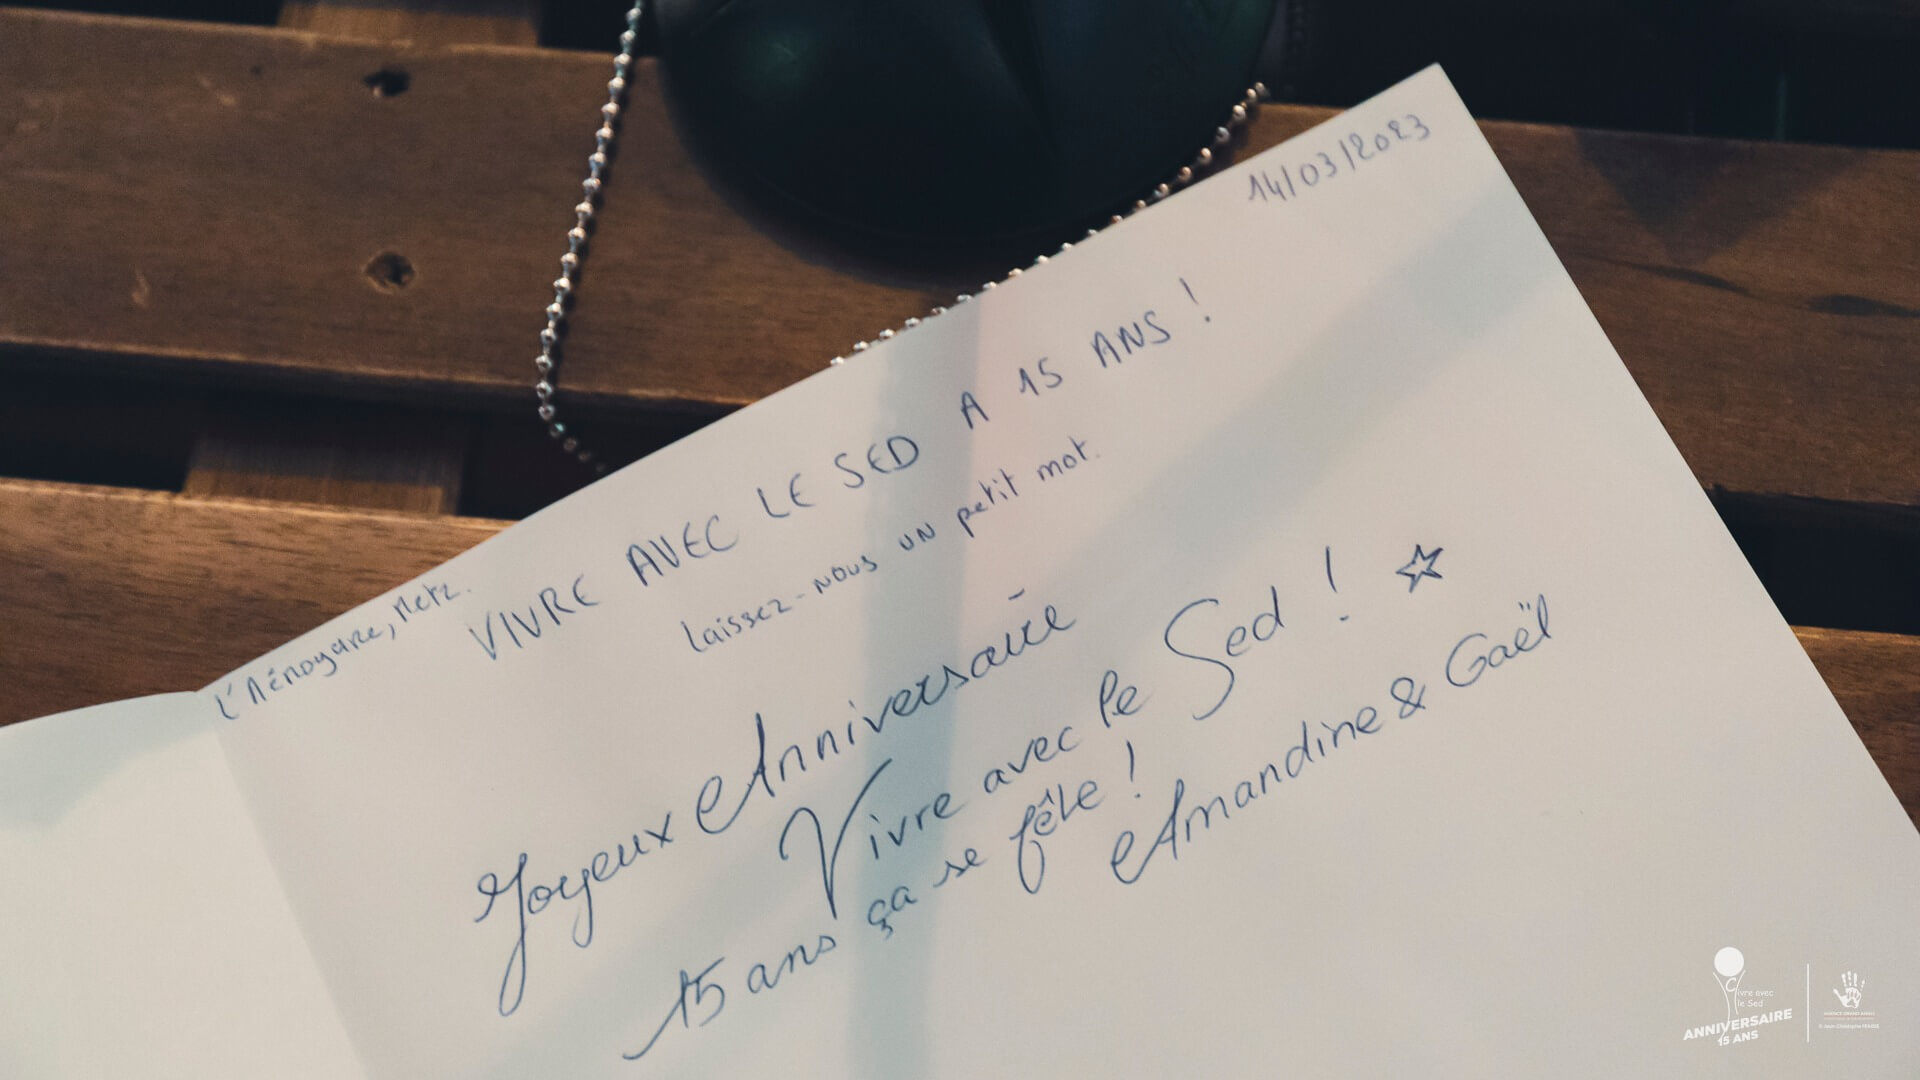 14/03/2023
L'Aérogare, Metz.
VIVRE AVEC LE SED A 15 ANS !
Laissez-nous un petit mot.
Joyeux Anniversaire
Vivre avec le Sed !
15 ans ça se fête !
Amandine & Gaël
Vivre avec
le Sed
ANNIVERSAIRE
15 ANS